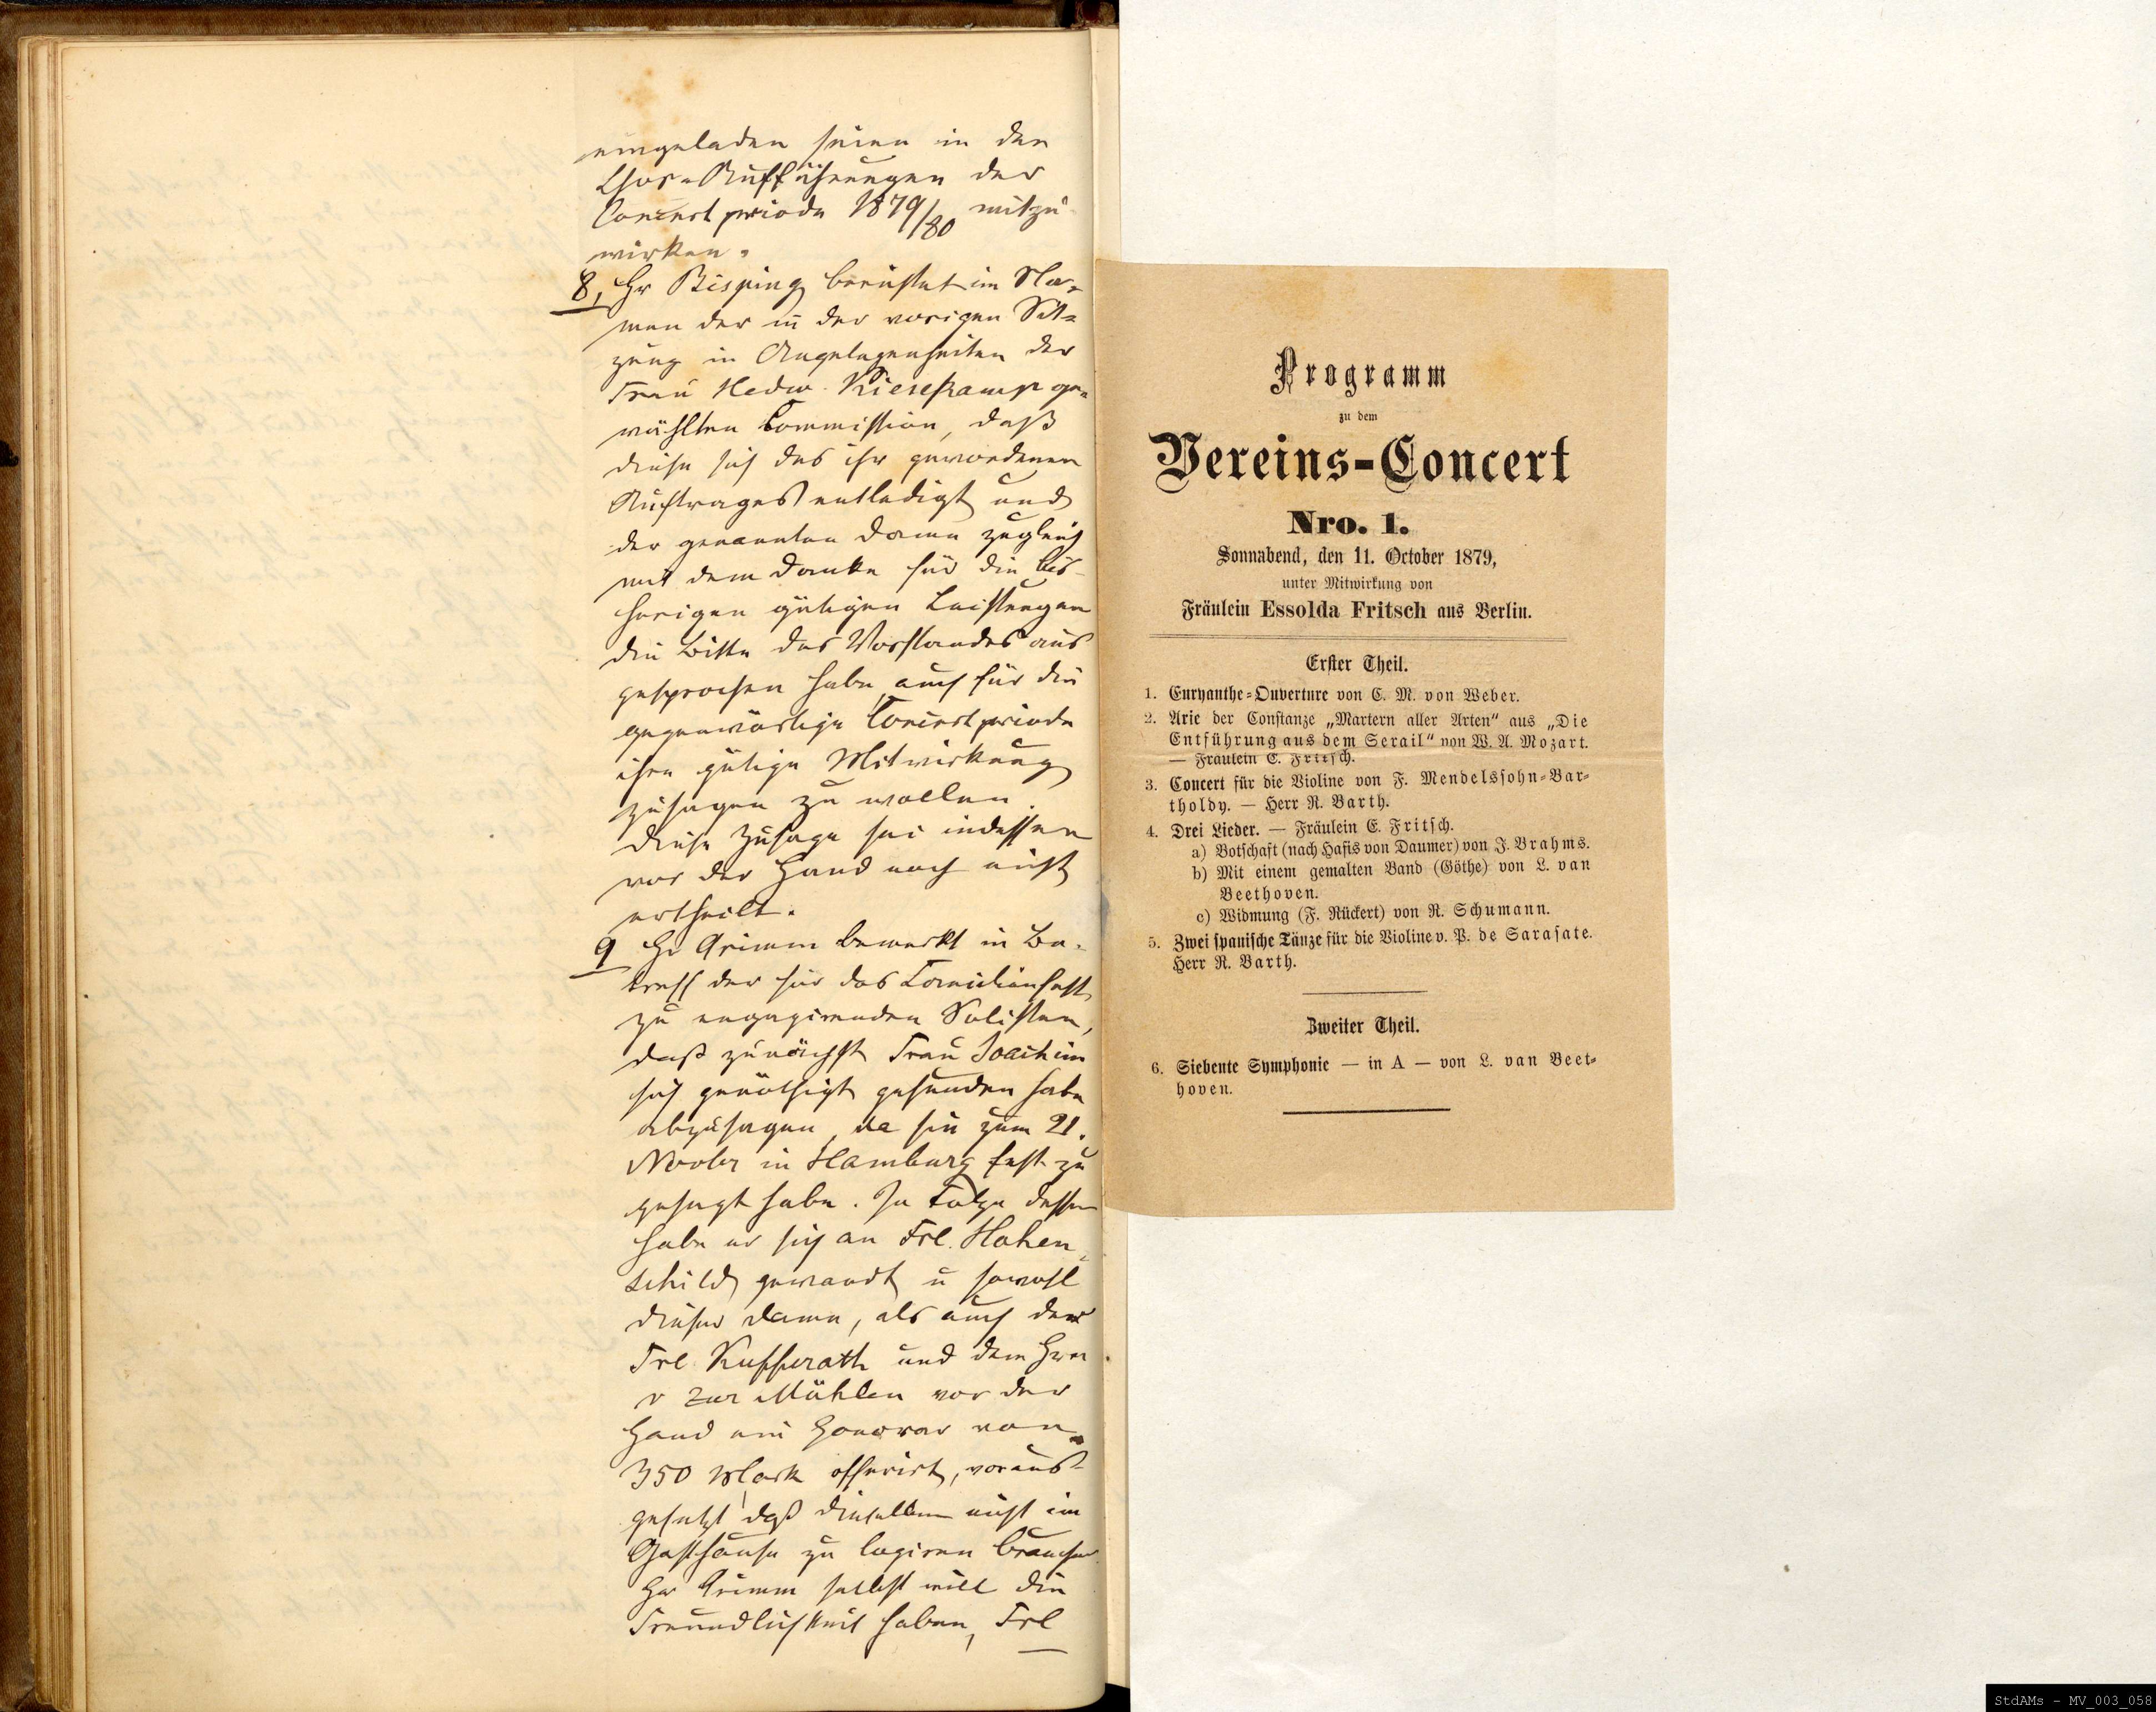 eingeladen seien in den
Chor-Aufführungen der
Concertperiode 1879/80 mitzu
wirken.
8, Hr Bisping berichtet im Na-
men der in der vorigen Sit-
zung in Angelegenheiten der
Frau Hedw. Kiesekamp ge-
wählten Commission, daß
diese sich des ihr gewordenen
Auftrages entledigt und
der genannten Dame zugleich
mit dem Danke für die bis-
herigen gütigen Leistungen
die Bitte des Vorstandes aus
gesprochen habe auch für die
gegenwärtige Concertperiode
ihre gütige Mitwirkung
zusagen zu wollen.
Diese Zusage sei indessen
vor der Hand noch nicht
ertheilt.
9 Hr Grimm bemerkt in Be-
treff der für das Cäcilienfest
zu engagirenden Solisten,
daß zunächst Frau Joachim
sich genöthigt gefunden habe
abzusagen, da sie zum 21.
Novbr in Hamburg fest zu
gesagt habe. In Folge dessen
habe er sich an Frl. Hohen-
schild gewandt u sowohl
dieser Dame, als auch der
Frl Kufferath und dem Hrn
v zur Mühlen vor der
Hand ein Honorar von
350 Mark offerirt, voraus-
gesetzt daß dieselben nicht im
Gasthause zu logiren brauchen
Hr Grimm selbst will die
Freundlichkeit haben, Frl
Programm
zu dem
Vereins-Concert
Nro. 1.
Sonnabend, den 11. October 1879,
unter Mitwirkung von
Fräulein Essolda Fritsch aus Berlin.
Erster Theil.
1. Euryanthe-Ouverture von C. M. von Weber.
2. Arie der Constanze „Martern aller Arten“ aus „Die
Entführung aus dem Serail“ von W. A. Mozart.
— Fräulein E. Fritsch.
3. Concert für die Violine von F. Mendelssohn-Bar-
tholdy. — Herr R. Barth.
4. Drei Lieder. — Fräulein E. Fritsch.
a) Botschaft (nach Hafis von Daumer) von J. Brahms.
b) Mit einem gemalten Band (Göthe) von L. van
Beethoven.
c) Widmung (F. Rückert) von R. Schumann.
5. Zwei spanische Tänze für die Violine v. P. de Sarasate.
Herr R. Barth.
Zweiter Theil.
6. Siebente Symphonie — in A — von L. van Beet-
hoven.
StdAMs - MV_003_058